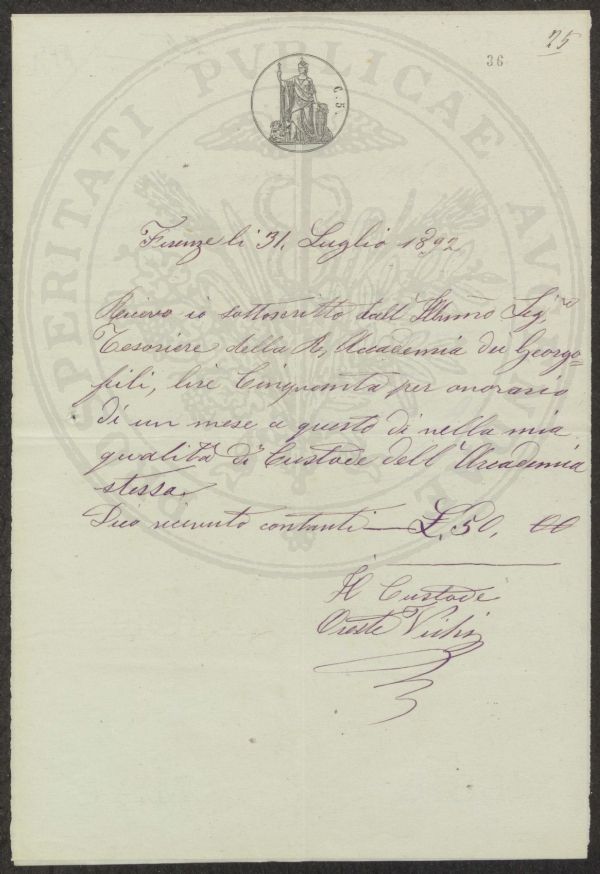 25
36
C. 5.
Firenze li 31. Luglio 1892
Ricevo io sottoscritto dall' Illmo Sigre
Tesoriere della R. Accademia dei Georgo=
fili, lire Cinquanta per onorario
di un mese a questo dì nella mia
qualità di Custode dell' Accademia
stessa.
Dico ricevuto contanti — £. 50. 00
Il Custode
Oreste
PROSPERITATI PUBLICAE AUGENDAE